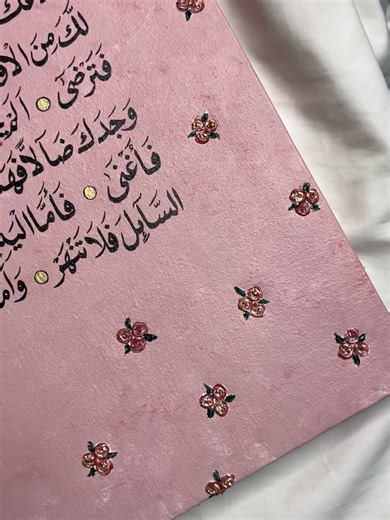 لَّكَ مِنَ الْأُو
فَتَرْضَىٰ ۝ أَلَمْ
وَجَدَكَ ضَالًّا فَهَ
فَأَغْنَىٰ ۝ فَأَمَّا الْيَ
السَّآئِلَ فَلَا تَنْهَرْ ۝ وَأَم